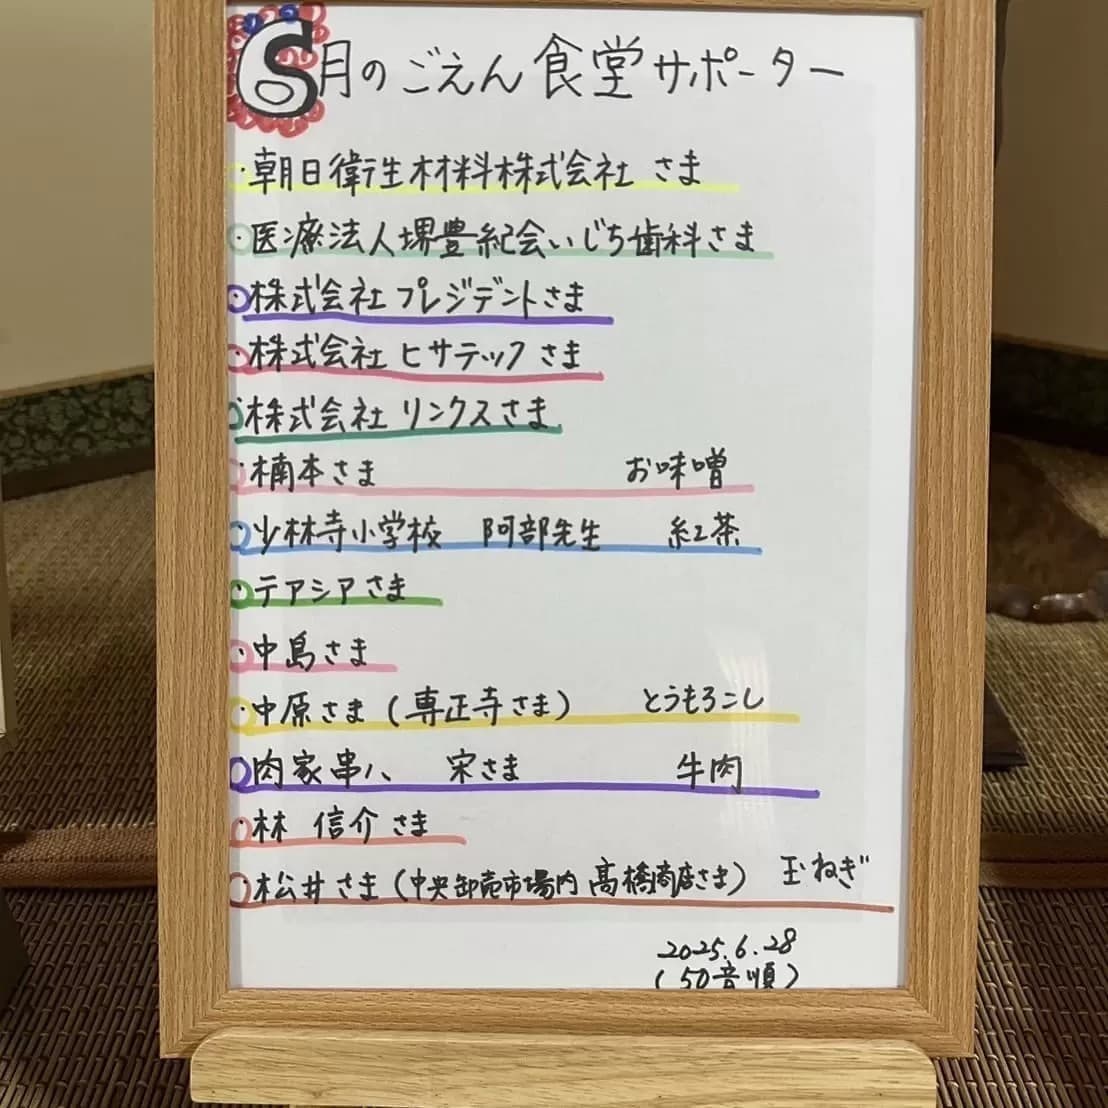 6月のごえん食堂サポーター
・朝日衛生材料株式会社 さま
・医療法人堺豊紀会いじち歯科さま
・株式会社プレジデントさま
・株式会社ヒサテックさま
・株式会社リンクスさま
・楠本さま お味噌
・少林寺小学校 阿部先生 紅茶
・テアシアさま
・中島さま
・中原さま(専正寺さま) とうもろこし
・肉家串八 宋さま 牛肉
・林 信介さま
・松井さま(中央卸売市場内 髙橋商店さま) 玉ねぎ
2025.6.28
(50音順)